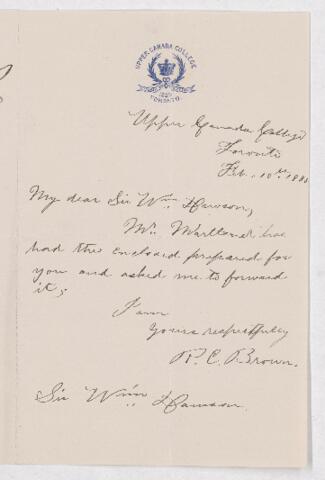 UPPER CANADA COLLEGE
TORONTO
Upper Canada College
Toronto
Feb. 10th
My dear Sir Wm. Dawson,
Mr. has
had the enclosed prepared for
you and asked me to forward
it;
I am
Yours respectfully
Brown.
Sir Wm Dawson.